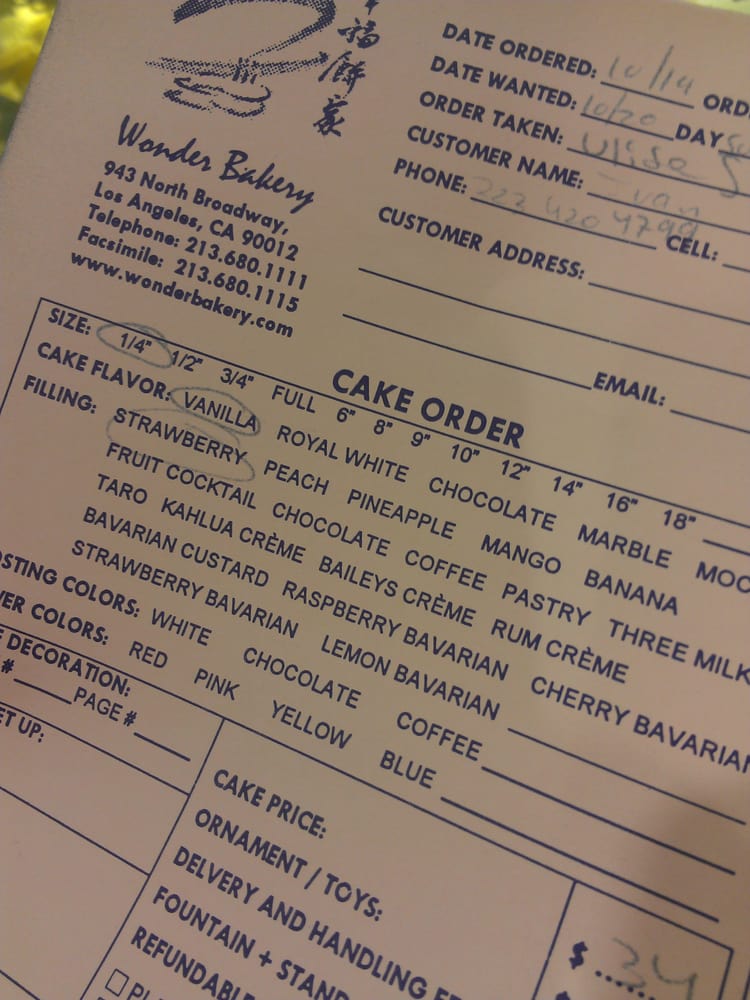 幸福餅家
Wonder Bakery
943 North Broadway,
Los Angeles, CA 90012
Telephone: 213.680.1111
Facsimile: 213.680.1115
www.wonderbakery.com
DATE ORDERED: 10/19
DATE WANTED: 10/20 DAY
ORDER TAKEN:
CUSTOMER NAME: Ivan
PHONE: 4799 CELL:
CUSTOMER ADDRESS:
EMAIL:
CAKE ORDER
SIZE: 1/4" 1/2" 3/4" FULL 6" 8" 9" 10" 12" 14" 16" 18"
CAKE FLAVOR: VANILLA ROYAL WHITE CHOCOLATE MARBLE MOC
FILLING: STRAWBERRY PEACH PINEAPPLE MANGO BANANA
FRUIT COCKTAIL CHOCOLATE COFFEE PASTRY THREE MILK
TARO KAHLUA CRÈME BAILEYS CRÈME RUM CRÈME
BAVARIAN CUSTARD RASPBERRY BAVARIAN CHERRY BAVARIAN
STRAWBERRY BAVARIAN LEMON BAVARIAN
OSTING COLORS: WHITE CHOCOLATE COFFEE
WER COLORS: RED PINK YELLOW BLUE
E DECORATION:
# PAGE #
ET UP:
CAKE PRICE:
ORNAMENT / TOYS:
DELVERY AND HANDLING FE
FOUNTAIN + STAND
REFUNDABLE
$ 34